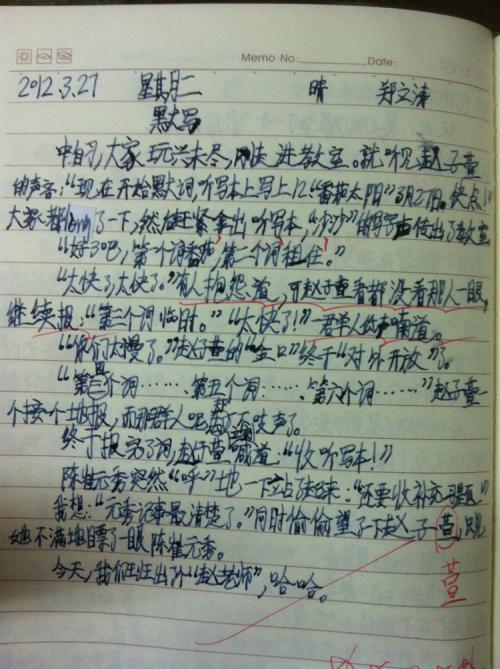 Memo No: Date:
2012.3.27 星期二 晴 郑立涛
默写
中自习,大家玩兴未尽,刚快进教室。就听见赵子萱
的声音:“现在开始默词,听写本上写上12“番茄太阳”3月27日。快点!”
大家都愣了一下,然后赶紧拿出听写本,“沙沙”的写字声传出了教室
“好了吧,第一个词番茄,第二个词租住。”
“太快了,太快了。”有人抱怨道,可赵子萱看都没看那人一眼,
继续报:“第三个词临时。”“太快了!”一群人低声喃道。
“你们太慢了。”赵子萱的“金口”终于“对外开放”了。
“第四个词……第五个词……第六个词……”赵子萱一
个接一个地报,而那群人呢再不吱声了。
终于报完了词,赵子萱喊道:“收听写本!”
陈崔元秀突然“呼”地一下站了起来:“还要收补充习题。”
我想:“元秀记事最清楚了。”同时偷偷望了下赵子萱,只见
她不满地瞟了一眼陈崔元秀。
萱
今天,我们班出了个“赵老师”,哈哈。